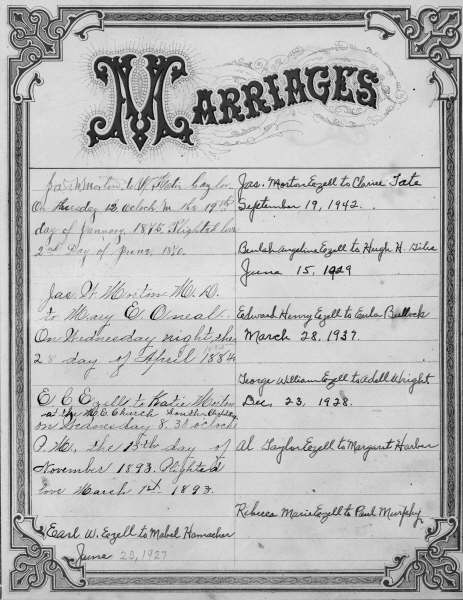 MARRIAGES
Jas. W. Morton to W. Kate Caylor
On thursday 12 Oclock, M. the 19th
day of January, 1875. Plighted love
2nd Day of June, 1870.
Jas W Morton M. D.
to Mary E. Oneal.
On Wednesday night, the
28 day of April 1884
E C Ezell to Katie Morton
at the M.E. Church South
on Wednesday 8.30 oclock
P.M. the 15th day of
November 1893. Plighted
love March 1st 1893.
Earl W. Ezell to Mabel Hamacher
June 20, 1927
Jas. Morton Ezell to Clarice Tate
September 19, 1942.
Beulah Angeline Ezell to Hugh H.
June 15, 1929
Edward Henry Ezell to Eula Bullock
March 28, 1937.
George William Ezell to Odell Wright
Dec, 23, 1928.
Al Taylor Ezell to Margaret Harbar
Rebecca Marie Ezell to Paul Murphy